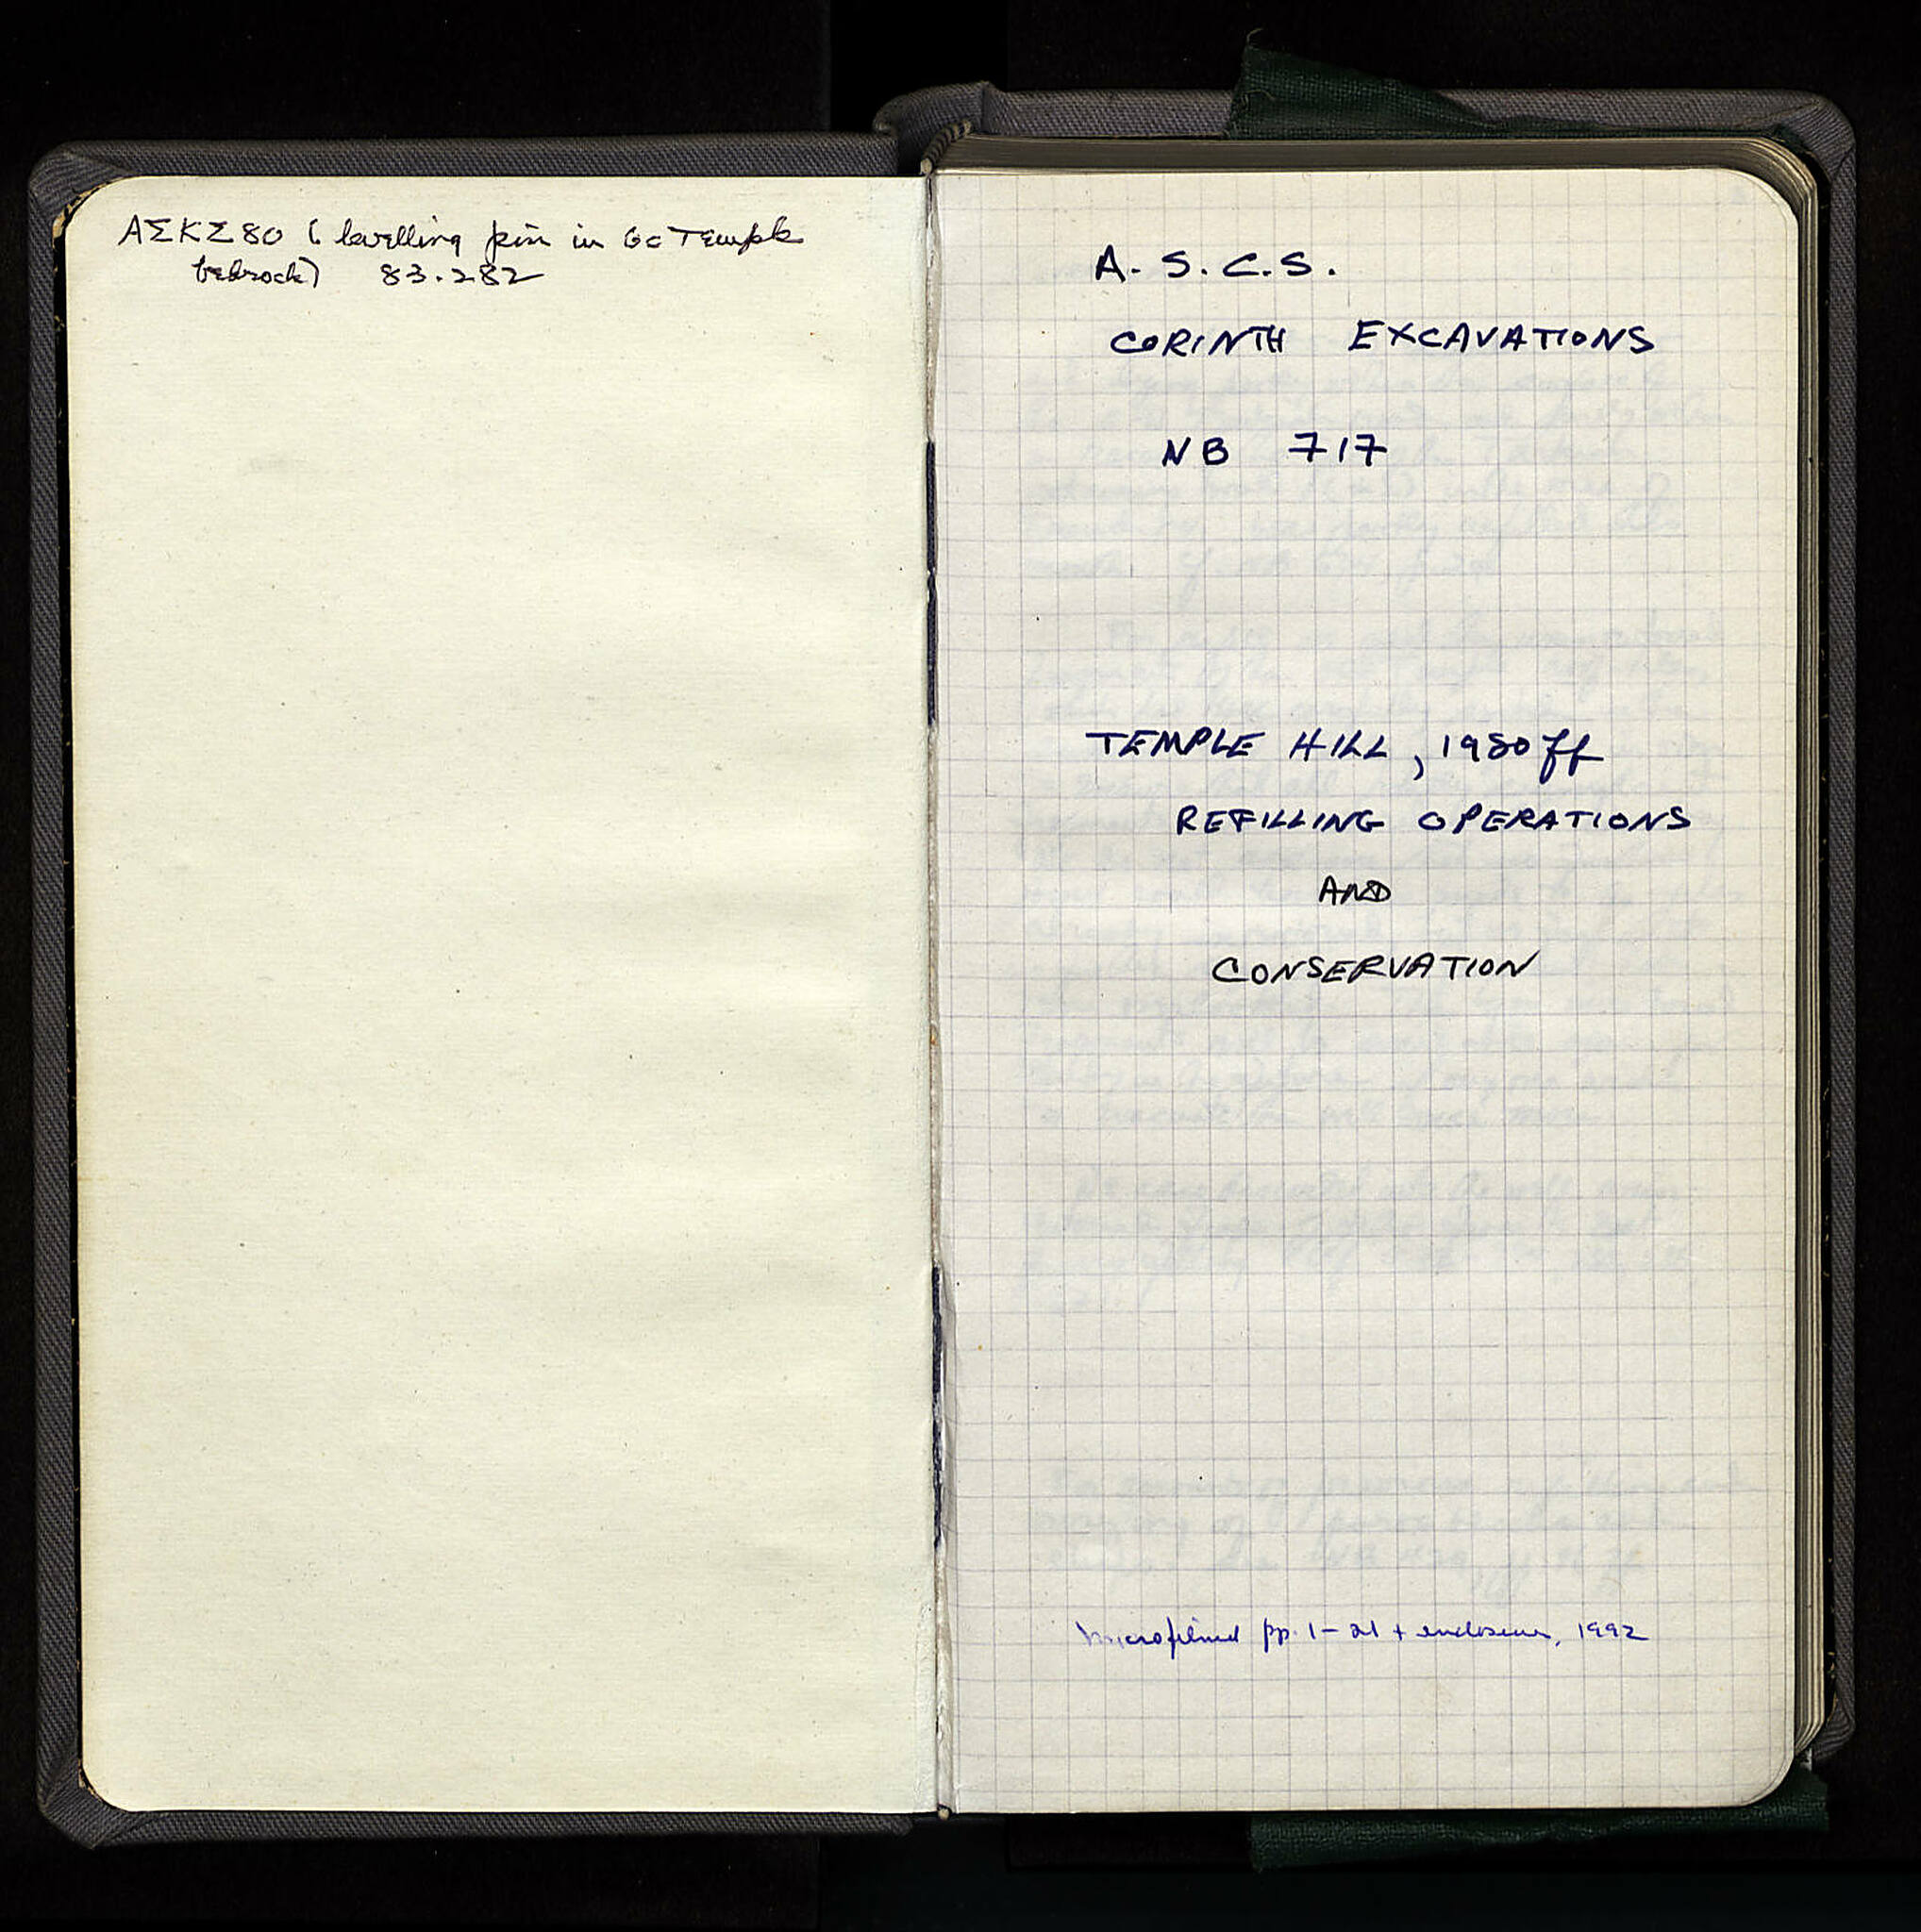 ΑΣΚΣ80 (levelling pin in Gc Temple
bedrock) 83.282
A. S. C. S.
CORINTH EXCAVATIONS
NB 717
TEMPLE HILL, 1980 ff
REFILLING OPERATIONS
AND
CONSERVATION
Microfilmed pp. 1-21 + enclosures, 1992